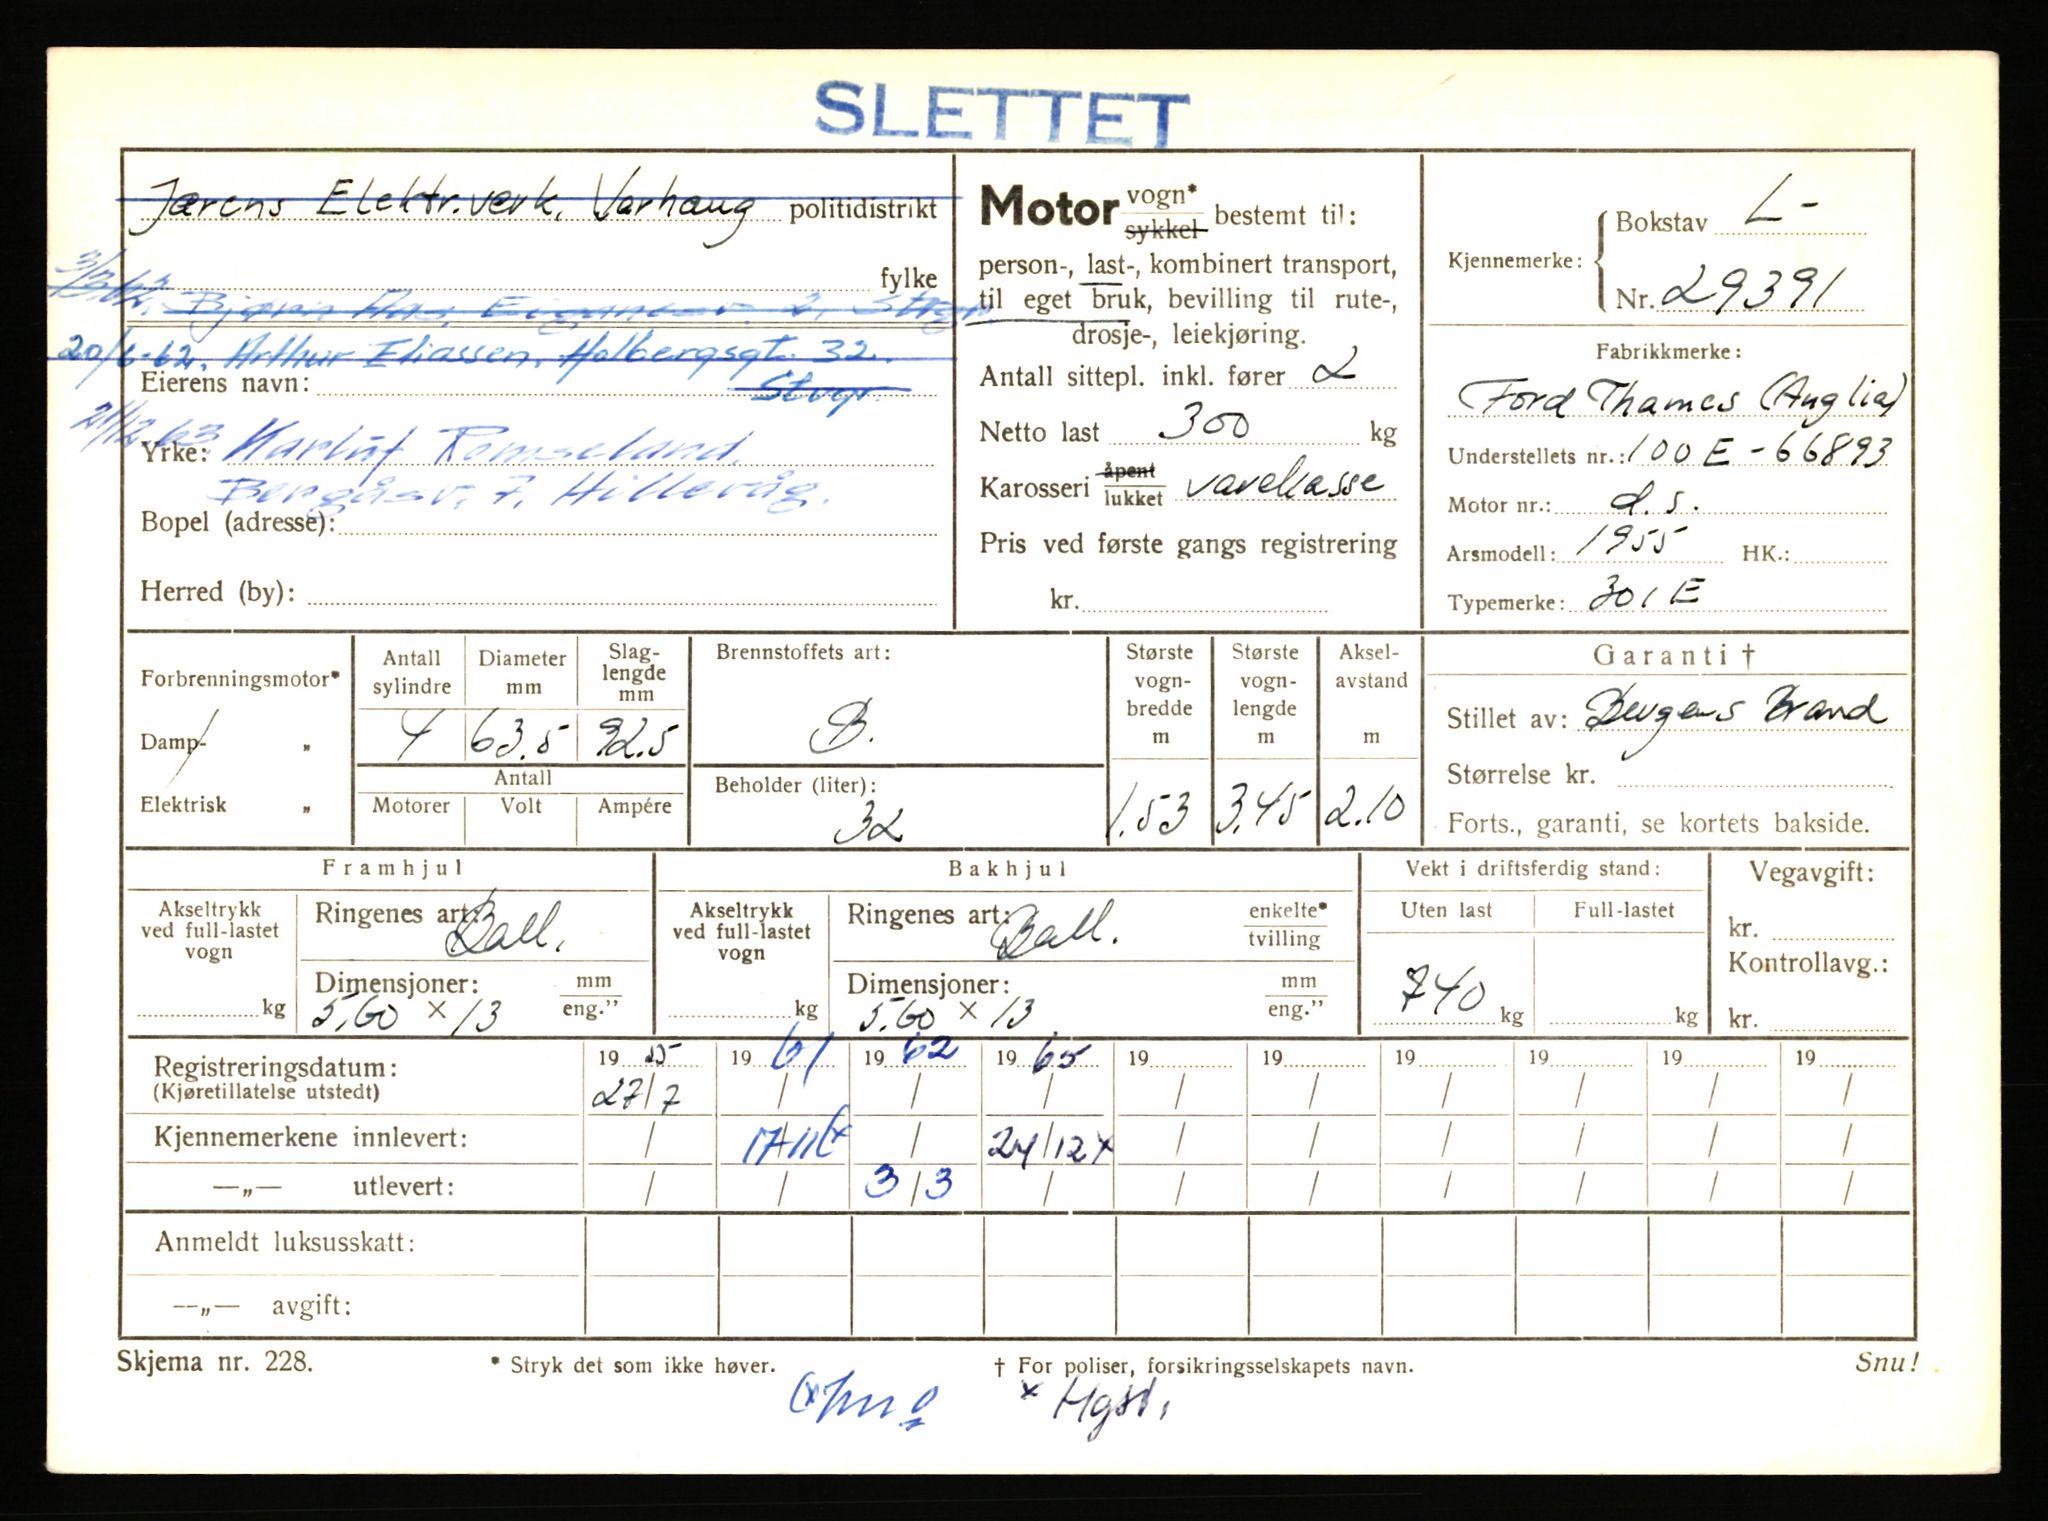 SLETTET
Jærens Elektr.verk, Varhaug politidistrikt
fylke
3/3-62. Bjørn Aas, Eiganesv. 2, Stvgr.
20/6-62. Arthur Eliassen, Holbergsgt. 32.
Eierens navn: Stvgr.
21/12 63 Karluf Romseland,
Yrke:
Bergåsv. 7, Hillevåg.
Bopel (adresse):
Herred (by):
Motor vogn* / sykkel bestemt til:
person-, last-, kombinert transport,
til eget bruk, bevilling til rute-,
drosje-, leiekjøring.
Antall sittepl. inkl. fører 2
Netto last 300 kg
Karosseri åpent / lukket varekasse
Pris ved første gangs registrering
kr.
Kjennemerke: Bokstav L-
Nr. 29391
Fabrikkmerke:
Ford Thames (Anglia)
Understellets nr.: 100E-66893
Motor nr.: d.s.
Arsmodell: 1955 HK.:
Typemerke: 301E
Forbrenningsmotor*
Damp- „
Elektrisk „
Antall sylindre 4
Diameter mm 63.5
Slaglengde mm 92.5
Antall
Motorer Volt Ampére
Brennstoffets art:
B.
Beholder (liter):
32
Største vognbredde m 1.53
Største vognlengde m 3.45
Akselavstand m 2.10
Garanti †
Stillet av: Bergens Brand
Størrelse kr.
Forts., garanti, se kortets bakside.
Framhjul
Akseltrykk ved full-lastet vogn kg
Ringenes art: Ball.
Dimensjoner: mm / eng.”
5.60 × 13
Bakhjul
Akseltrykk ved full-lastet vogn kg
Ringenes art: Ball. enkelte* / tvilling
Dimensjoner: mm / eng.”
5.60 × 13
Vekt i driftsferdig stand:
Uten last Full-lastet
740 kg kg
Vegavgift:
kr.
Kontrollavg.:
kr.
Registreringsdatum: 19 55 19 61 19 62 19 65 19 19 19 19 19 19
(Kjøretillatelse utstedt) 27/7 / / / / / / / / /
Kjennemerkene innlevert: / 17/11 (x / 24/12 x / / / / / /
—„— utlevert: / / 3/3 / / / / / / /
Anmeldt luksusskatt:
—„— avgift:
Skjema nr. 228. * Stryk det som ikke høver. † For poliser, forsikringsselskapets navn. Snu!
x Hgst.